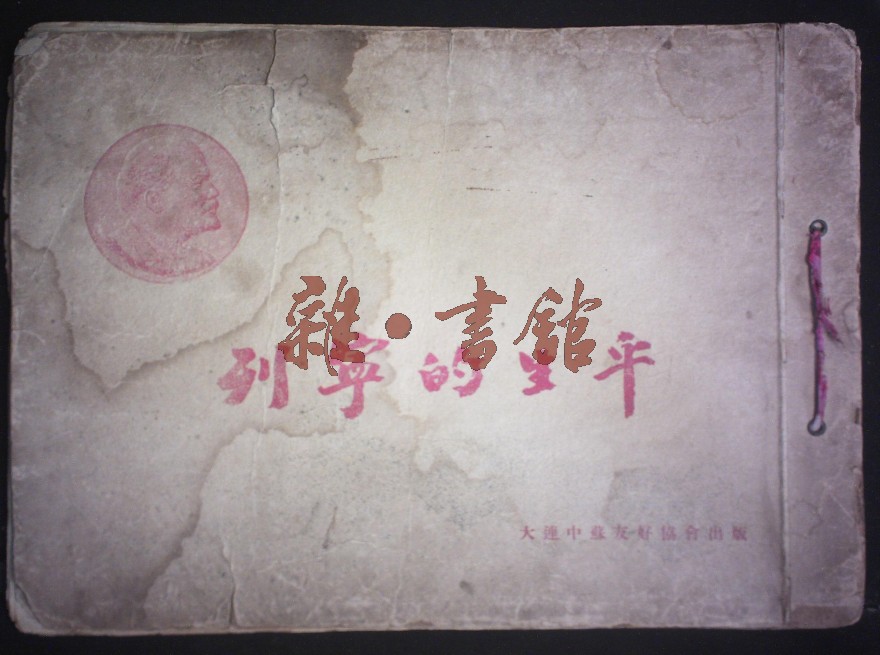 雜·書館
列寧的生平
大連中蘇友好協會出版